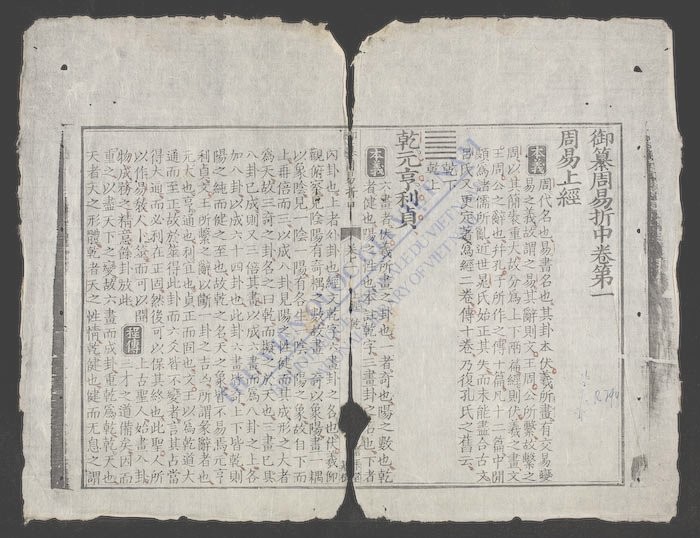 御纂周易折中卷第一
周易上經
本義
周代名也易書名也其卦本伏羲所畫有交易變
易之義故謂之易其辭則文王周公所繫故繫之
周以其簡袠重大故分為上下兩篇經則伏羲之畫文
王周公之辭也并孔子所作之傳十篇凡十二篇中間
頗為諸儒所亂近世晁氏始正其失而未能盡合古文
呂氏又更定著為經二卷傳十卷乃復孔氏之舊云
乾下
乾上
乾元亨利貞
本義
六畫者伏羲所畫之卦也一者奇也陽之數也乾
者健也陽之性也本註乾字三畫卦之名也下者
內卦也上者外卦也經文乾字六畫卦之名也伏羲仰
觀俯察見陰陽有奇耦之數故畫一奇以象陽畫一耦
以象陰見一陰一陽有各生一陰一陽之象故自下而
上再倍而三以成八卦見陽之性健而其成形之大者
為天故三奇之卦名之曰乾而擬之於天也三畫已具
八卦已成則又三倍其畫以成六畫而於八卦之上各
加八卦以成六十四卦也此卦六畫皆奇上下皆乾則
陽之純而健之至也故乾之名天之象皆不易焉元亨
利貞文王所繫之辭以斷一卦之吉凶所謂彖辭者也
元大也亨通也利宜也貞正而固也文王以為乾道大
通而至正故於筮得此卦而六爻皆不變者言其占當
得大通而必利在正固然後可以保其終也此聖人所
以作易教人卜筮而可以開
物成務之精意餘卦放此
程傳
上古聖人始畫八卦
三才之道備矣因而
重之以盡天下之變故六畫而成卦重乾為乾乾天也
天者天之形體乾者天之性情乾健也健而无息之謂